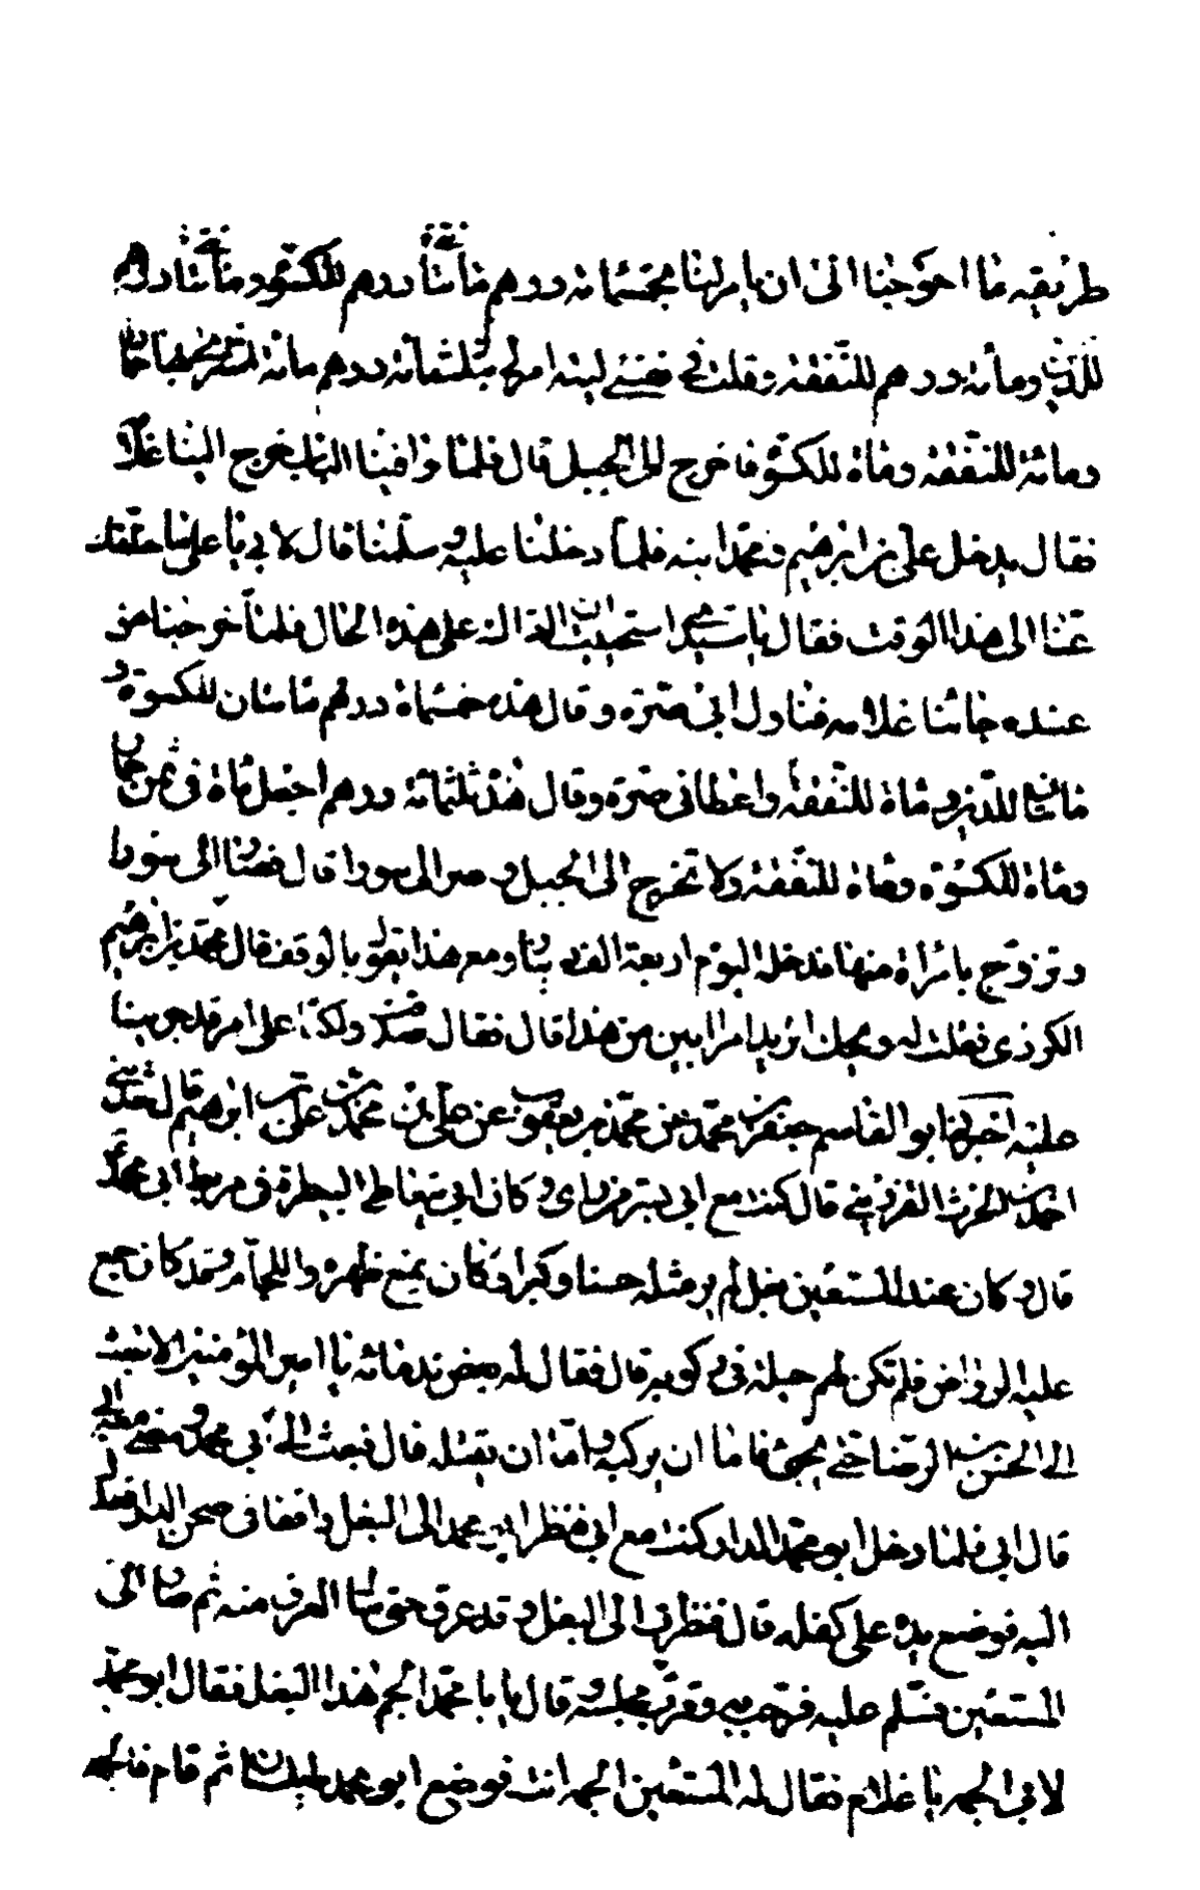 طريقه ما احوجنا الى ان يامر لنا بخمسمائة درهم مأتنا درهم للكسوة ومأتنا درهم
للدين ومائة درهم للنفقة وقلت في نفسي ليته امر لي بثلثمائة درهم مائة اشتري بها حمارا
ومائة للنفقة ومائة للكسوة فاخرج الى الجبل قال فلما وافينا الباب خرج الينا غلامه
فقال يدخل علي بن ابرهيم ومحمد ابنه فلما دخلنا عليه وسلمنا قال لابي يا علي ما خلفك
عنا الى هذا الوقت فقال يا سيدي استحييت ان القاك على هذه الحال فلما خرجنا من
عنده جائنا غلامه فناول ابي صرة وقال هذه خمسمائة درهم مائتان للكسوة و
مائتان للدين ومائة للنفقة واعطاني صرة وقال هذه ثلثمائة درهم اجعل مائة في ثمن حمار
ومائة للكسوة ومائة للنفقة ولا تخرج الى الجبل وصر الى سورا قال فصار الى سورا
وتزوج بامراة منها فدخله اليوم اربعة الف دينار ومع هذا يقول بالوقف قال محمد بن ابرهيم
الكردي فقلت له ويحك اتريد امرا ابين من هذا قال فقال صدقت ولكنا على امر قد جرينا
عليه اخبرني ابو القاسم جعفر بن محمد عن محمد بن يعقوب عن علي بن محمد عن علي بن ابرهيم قال حدثني
احمد بن الحرث القزويني قال كنت مع ابي بسر من راى وكان ابي يتعاطى البيطرة في مربط ابي محمد
قال وكان عند المستعين بغل لم ير مثله حسنا وكبرا وكان يمنع ظهره واللجام وقد كان جمع
عليه الرواض فلم تكن لهم حيلة في ركوبه قال فقال له بعض ندمائه يا امير المؤمنين الا تبعث
الى الحسن بن الرضا حتى يجئ فاما ان يركبه واما ان يقتله قال فبعث الى ابي محمد ومضى معه ابي
قال ابي فلما دخل ابو محمد الدار كنت مع ابي فنظر ابو محمد الى البغل واقفا في صحن الدار فعدل
اليه فوضع يده على كفله قال فنظرت الى البغل وقد عرق حتى سال العرق منه ثم صار الى
المستعين فسلم عليه فرحب به وقرب مجلسه قال يا با محمد الجم هذا البغل فقال ابو محمد
لابي الجمه يا غلام فقال له المستعين الجمه انت فوضع ابو محمد طيلسانه ثم قام فالجمه